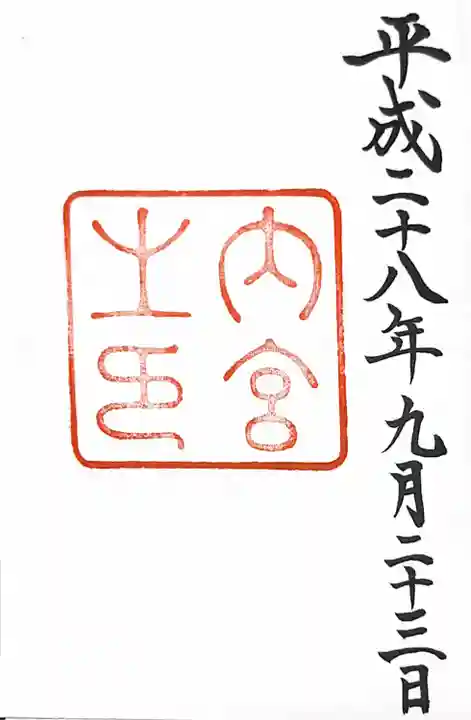 平成二十八年九月二十三日
内宮
之印